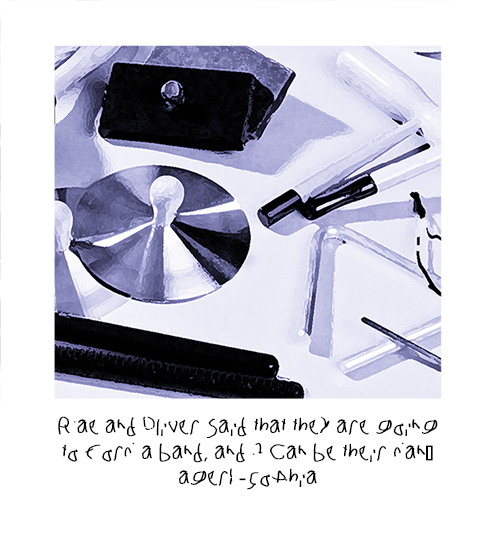 Rae and Oliver said that they are going
to form a band, and I can be their man
ager! -Sophia